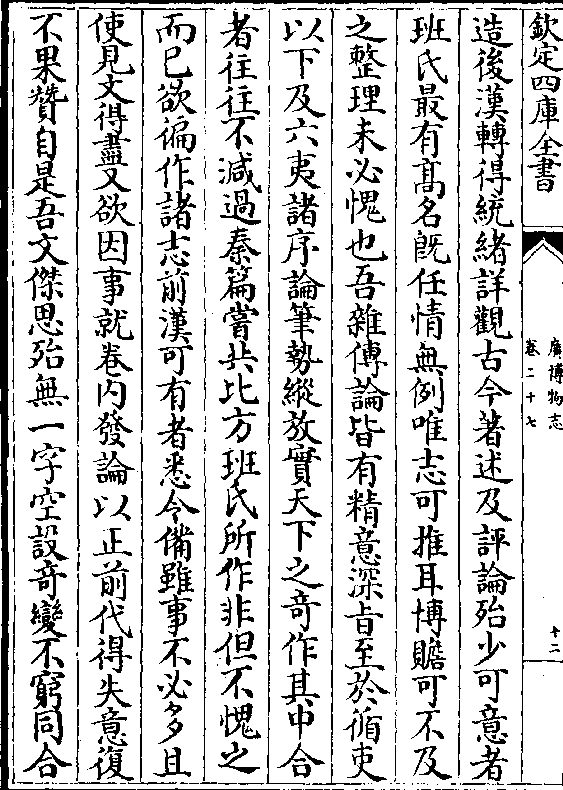 欽定四庫全書
廣博物志
卷二十七
十二
造後漢轉得統緒詳觀古今著述及評論殆少可意者
班氏最有髙名旣任情無例唯志可推耳博贍可不及
之整理未必愧也吾雜傳論皆有精意深㫖至於循吏
以下及六夷諸序論筆勢縱放實天下之竒作其中合
者往往不減過秦篇嘗共比方班氏所作非但不愧之
而已欲徧作諸志前漢可有者悉令備雖事不必多且
使見文得盡又欲因事就卷内發論以正前代得失意復
不果贊自是吾文傑思殆無一字空設竒變不窮同合